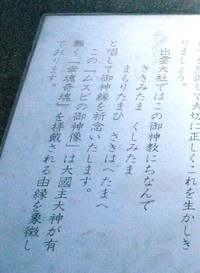 大切に正しくこれを生かしき
りましょう。
出雲大社ではこの御神教にちなんで
さきみたま　くしみたま
まもりたまひ　さきはへたまへ
と唱して御神縁を祈念いたします。
この「ムスビの御神像」は大國主大神が有
難く「幸魂奇魂」を拝戴される由縁を象徴し
ております。